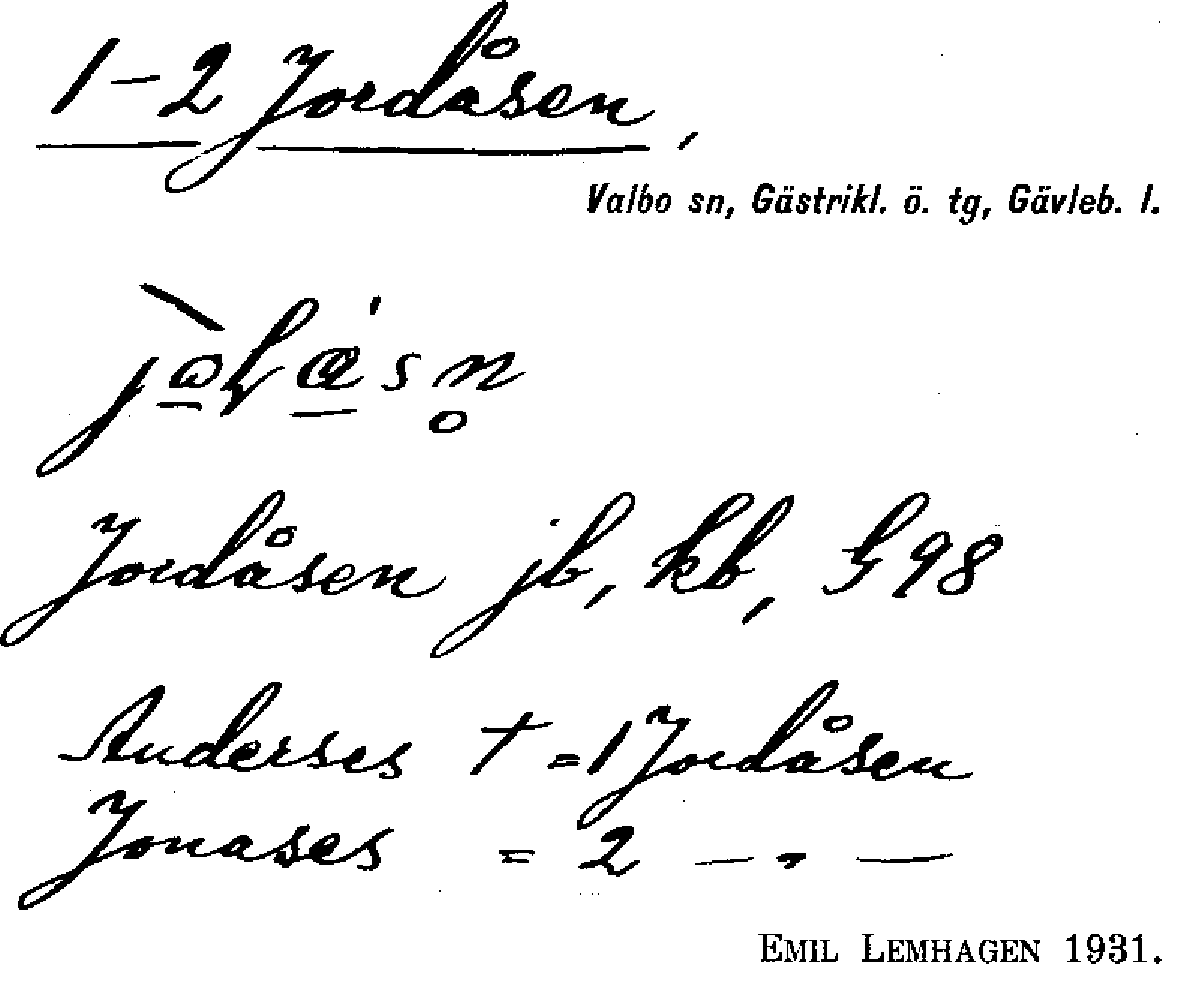 1-2 Jordåsen,
Valbo sn, Gästrikl. ö. tg, Gävleb. l.
Jordåsen jb, kb, G 98
Anderses † = 1 Jordåsen
Jonases = 2 — „ —
EMIL LEMHAGEN 1931.